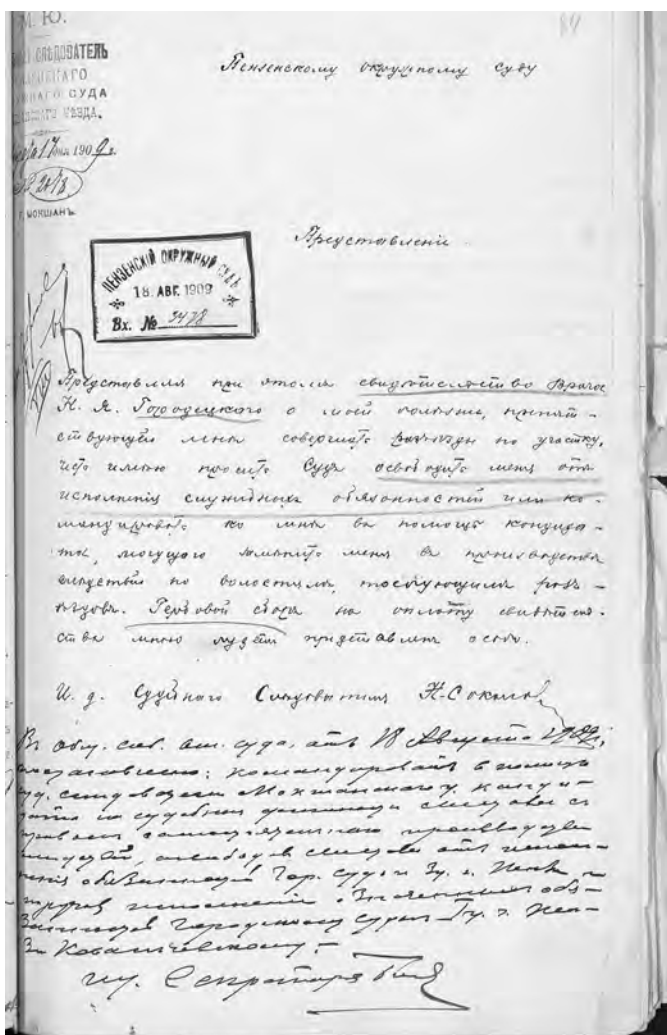 М. Ю.
СЛѢДОВАТЕЛЬ
СУДА
УѢЗДА.
17 1909 г.
г. МОКШАНЪ
84
Пензенскому окружному суду
Представленіе
ПЕНЗЕНСКІЙ ОКРУЖНЫЙ СУДЪ
18. АВГ. 1909
Вх. № 3478
Представляя при этомъ свидѣтельство Врача
Н. Я. Городецкаго о моей болѣзни, препят-
ствующей мнѣ совершать разъѣзды по участку,
честь имѣю просить Судъ освободить меня отъ
исполненія служебныхъ обязанностей или ко-
мандировать ко мнѣ въ помощь кандида-
та, могущаго замѣнить меня въ производствѣ
слѣдствій по волостямъ, требующимъ разъ-
ѣздовъ. Гербовый сборъ на оплату свидѣтель-
ства мною будетъ представленъ особо.
И. д. Судебнаго Слѣдователя Н. Соколовъ
Въ общ. соб. отд. суда, отъ 18 Августа 1909 г.,
постановлено: командировать въ помощь
суд. слѣдователю Мокшанскаго у. канди-
дата на судебныя должности
правомъ самостоятельнаго производства
слѣдствій, освободивъ отъ испол-
ненія обязанностей Гор. судьи 3 у. г. Пензы
исполненіе обя-
занностей Городскому судьѣ г. Пен-
зы
Секретарь